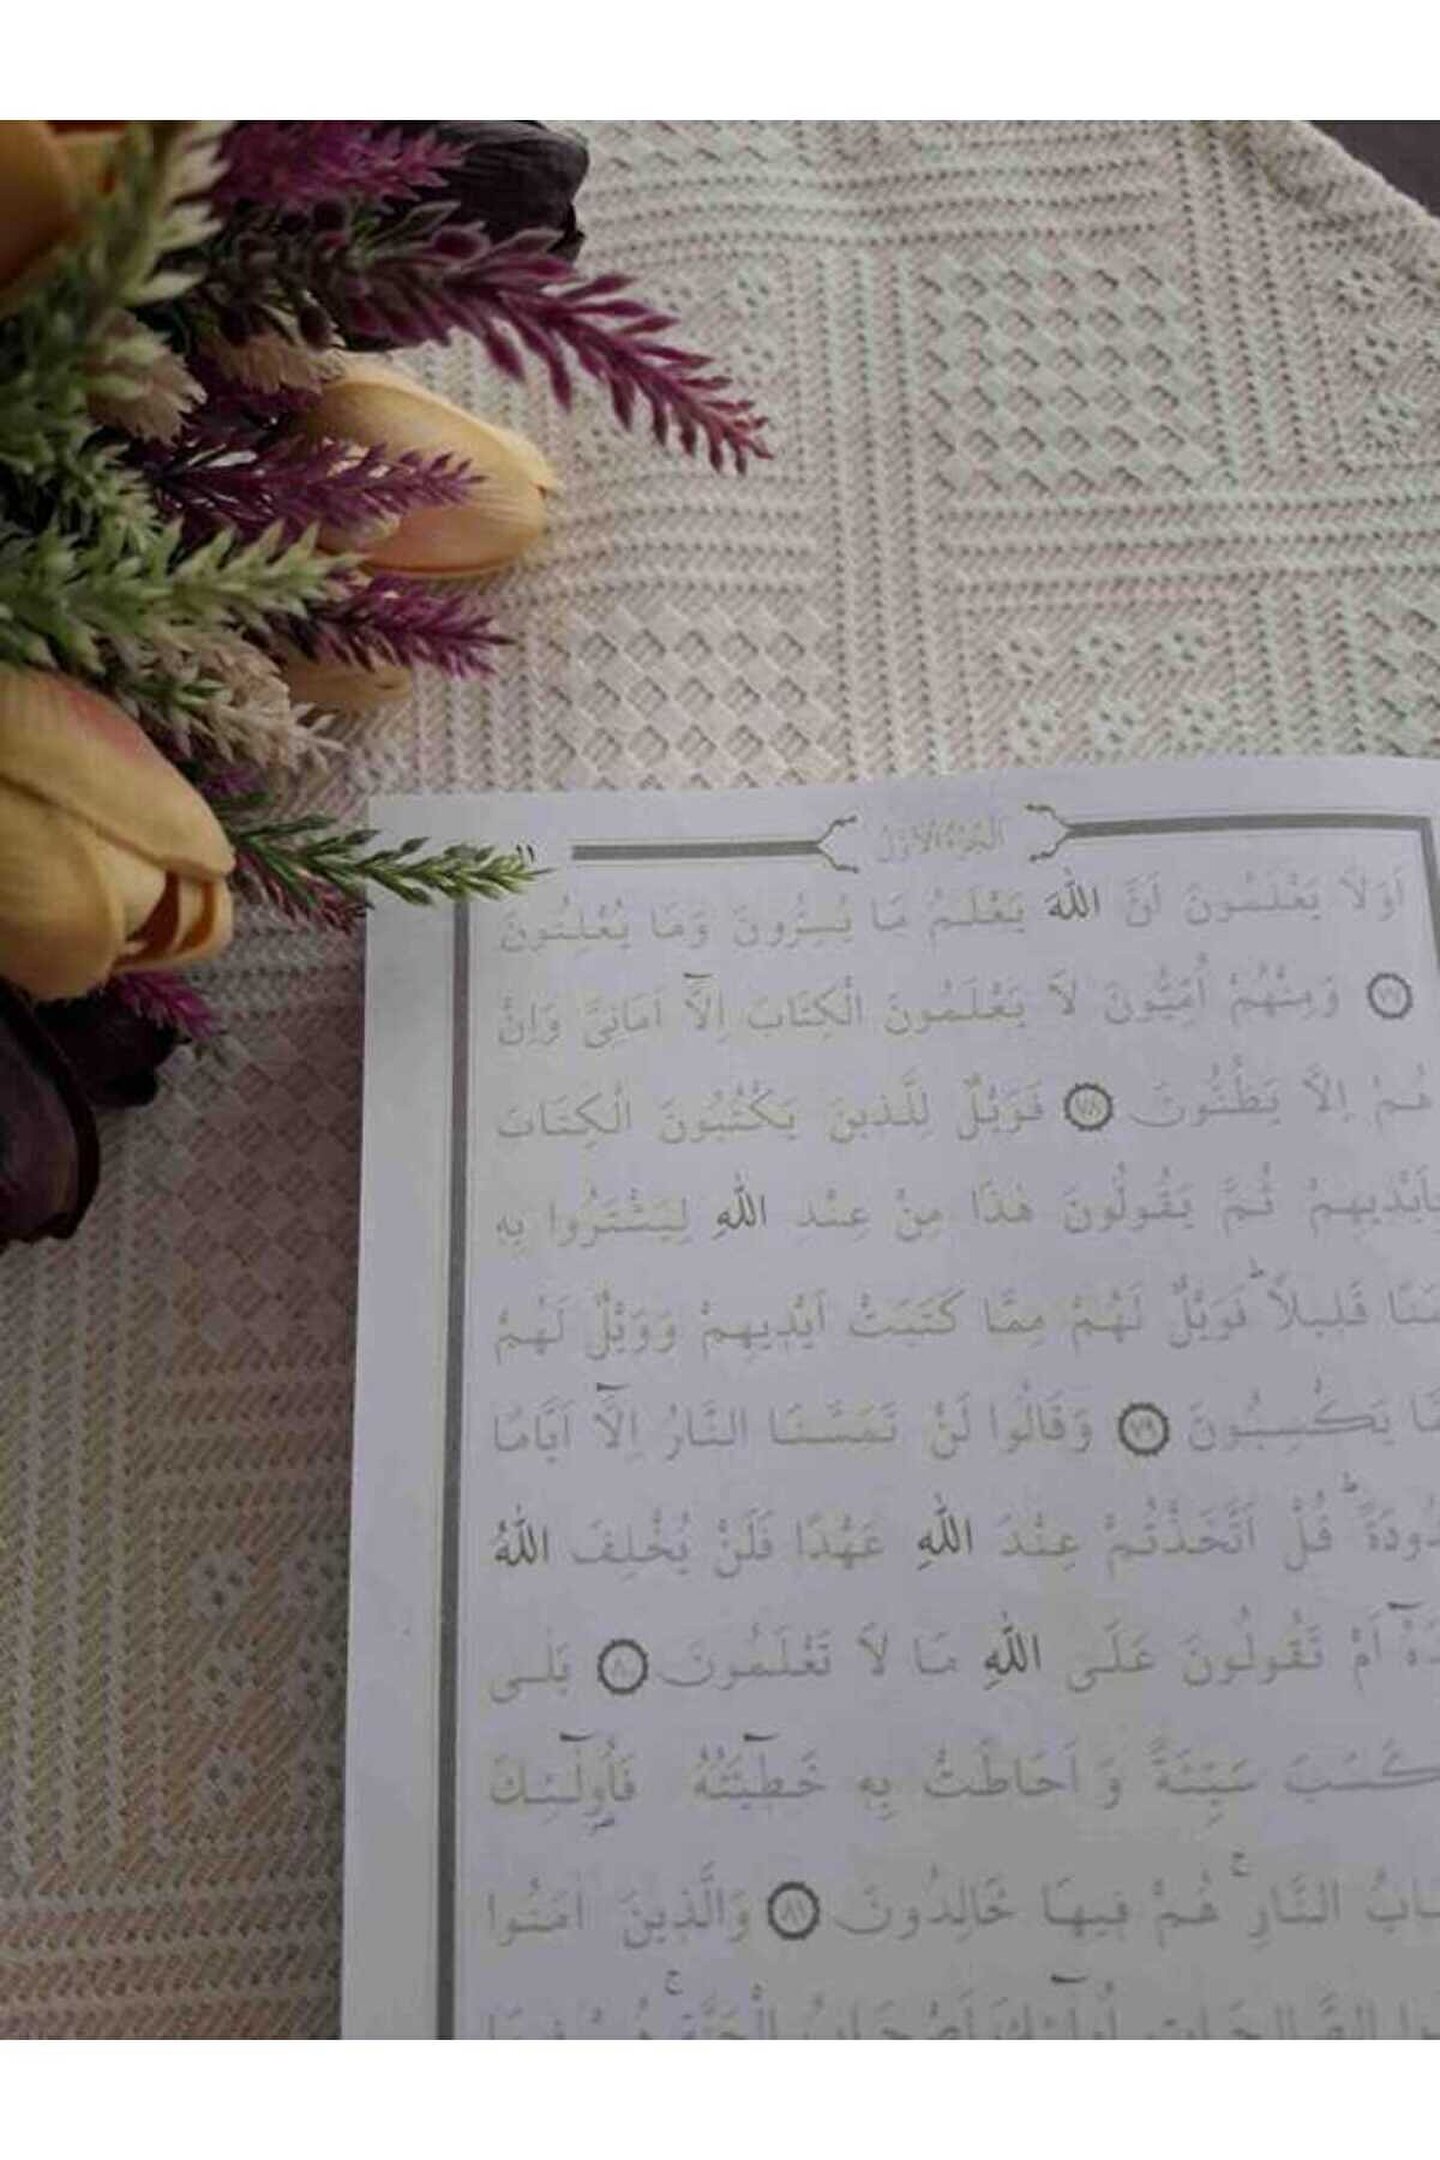 ١١
الجزء الاول
اَوَلَا يَعْلَمُونَ اَنَّ اللّٰهَ يَعْلَمُ مَا يُسِرُّونَ وَمَا يُعْلِنُونَ
﴿٧٧﴾ وَمِنْهُمْ اُمِّيُّونَ لَا يَعْلَمُونَ الْكِتَابَ اِلَّٓا اَمَانِيَّ وَاِنْ
هُمْ اِلَّا يَظُنُّونَ ﴿٧٨﴾ فَوَيْلٌ لِلَّذِينَ يَكْتُبُونَ الْكِتَابَ
بِاَيْدِيهِمْ ثُمَّ يَقُولُونَ هٰذَا مِنْ عِنْدِ اللّٰهِ لِيَشْتَرُوا بِهِ
قَلِيلًاۜ فَوَيْلٌ لَهُمْ مِمَّا كَتَبَتْ اَيْدِيهِمْ وَوَيْلٌ لَهُمْ
يَكْسِبُونَ ﴿٧٩﴾ وَقَالُوا لَنْ تَمَسَّنَا النَّارُ اِلَّٓا اَيَّامًا
قُلْ اَتَّخَذْتُمْ عِنْدَ اللّٰهِ عَهْدًا فَلَنْ يُخْلِفَ اللّٰهُ
اَمْ تَقُولُونَ عَلَى اللّٰهِ مَا لَا تَعْلَمُونَ ﴿٨٠﴾ بَلٰى
كَسَبَ سَيِّئَةً وَاَحَاطَتْ بِهِ خَطِٓيـَٔتُهُ فَاُو۬لٰٓئِكَ
النَّارِۚ هُمْ فِيهَا خَالِدُونَ ﴿٨١﴾ وَالَّذِينَ اٰمَنُوا
الصَّالِحَاتِ اُو۬لٰٓئِكَ اَصْحَابُ الْجَنَّةِۚ هُمْ فِيهَا